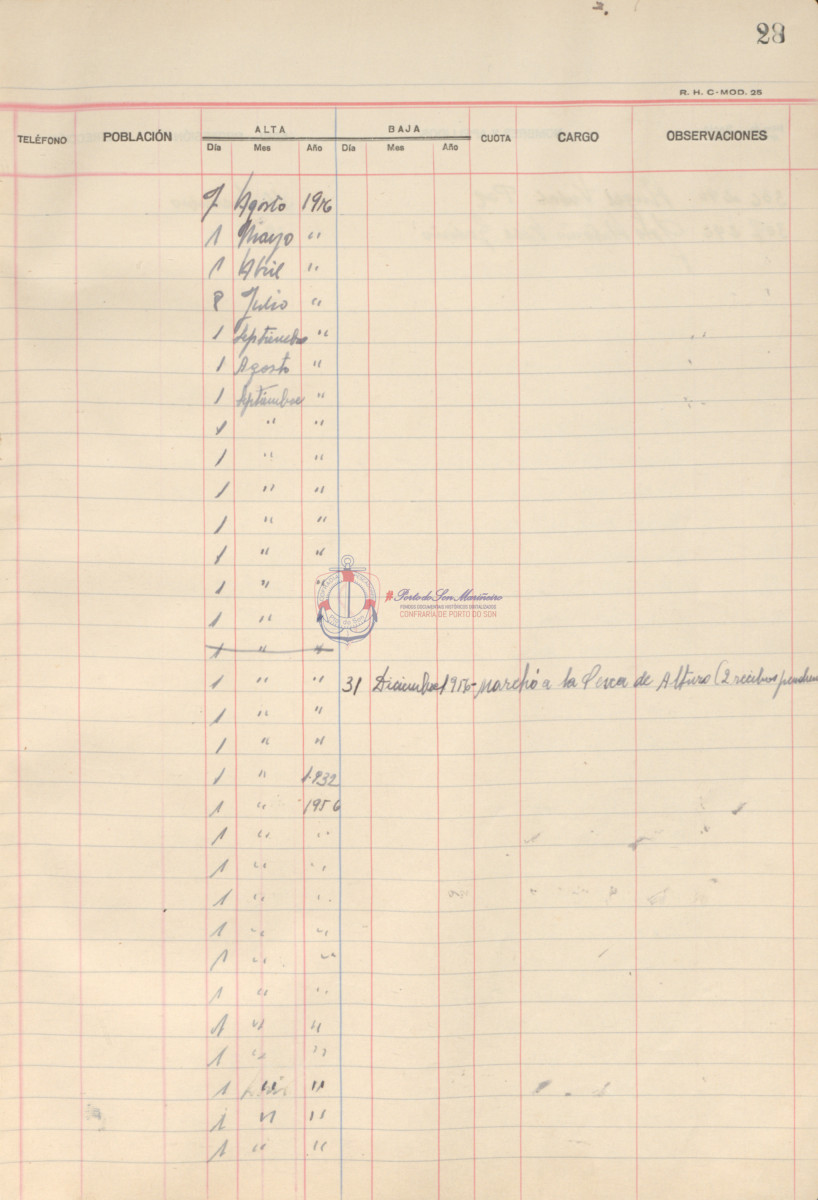 28
R. H. C-MOD. 25
TELÉFONO POBLACIÓN ALTA BAJA CUOTA CARGO OBSERVACIONES
Día Mes Año Día Mes Año
7 Agosto 1956
1 Mayo "
1 Abril "
8 Julio "
1 Septiembre "
1 Agosto "
1 Septiembre "
1 " "
1 " "
1 " "
1 " "
1 " "
1 " "
1 " "
1 " "
1 " " 31 Diciembre 1956 - marchó a la Pesca de Altura (2 recibos
1 " "
1 " "
1 " 1932
1 " 1956
1 " "
1 " "
1 " "
1 " "
1 " "
1 " "
1 " "
1 " "
1 " "
1 " "
1 " "
#Porto do Son Mariñeiro
FONDOS DOCUMENTAIS HISTÓRICOS DIXITALIZADOS
CONFRARÍA DE PORTO DO SON